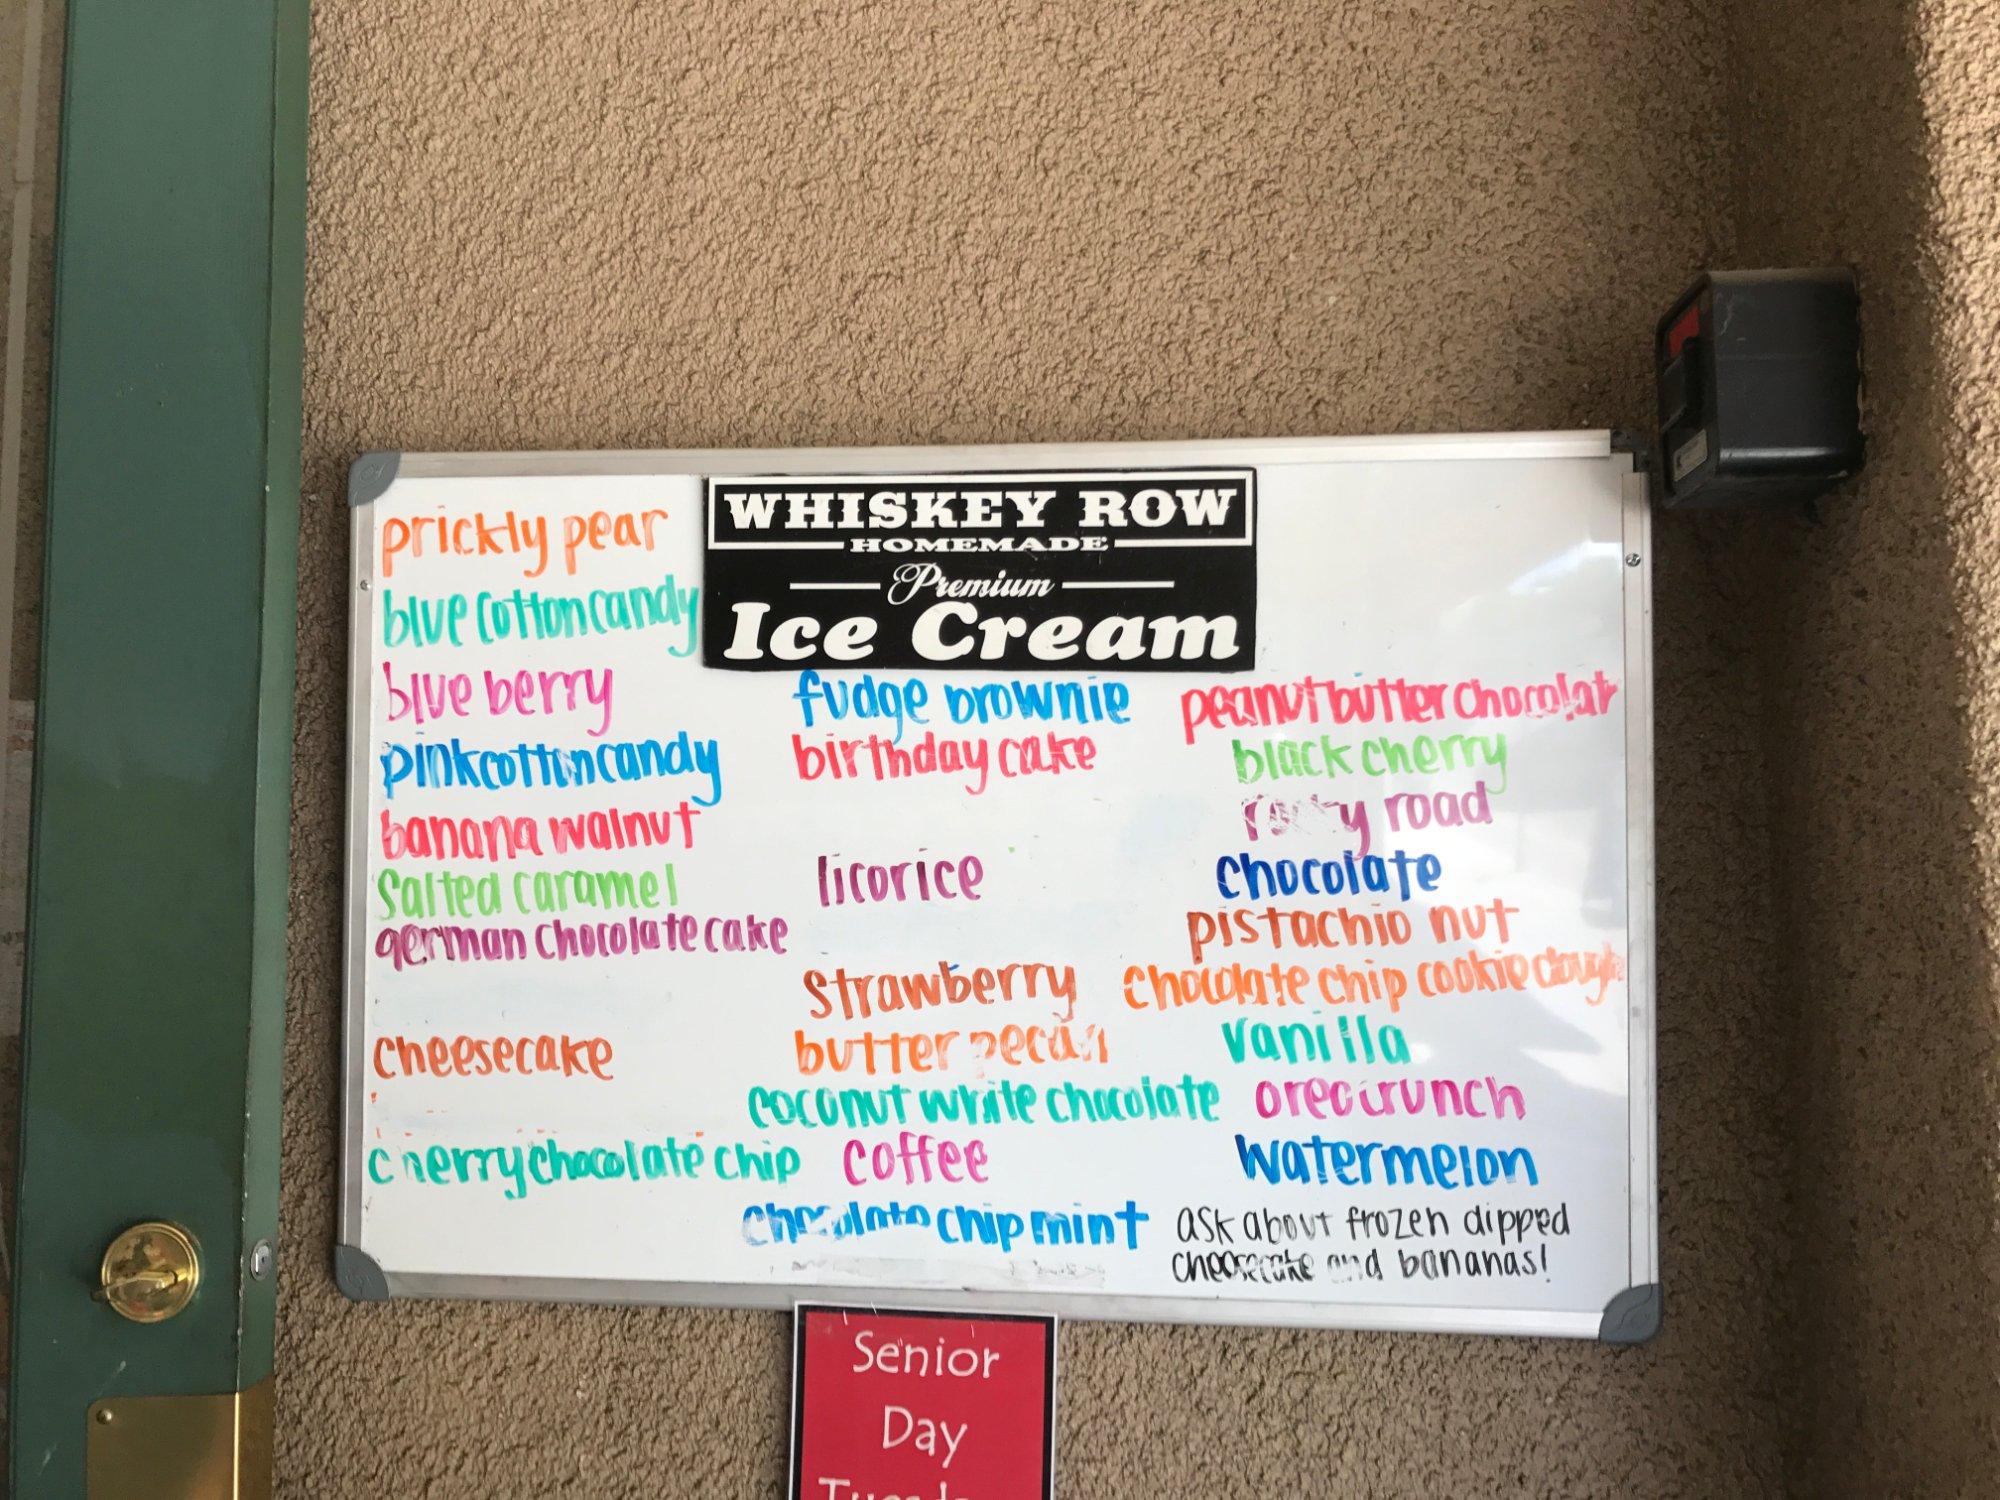 WHISKEY ROW
HOMEMADE
Premium
Ice Cream
prickly pear
blue cotton candy
blue berry
pink cotton candy
banana walnut
salted caramel
german chocolate cake
cheesecake
cherry chocolate chip
fudge brownie
birthday cake
licorice
strawberry
butter pecan
coconut white chocolate
coffee
chocolate chip mint
peanut butter chocolat
black cherry
rocky road
chocolate
pistachio nut
chocolate chip cookie dough
vanilla
oreo crunch
watermelon
ask about frozen dipped
cheesecake and bananas!
Senior
Day